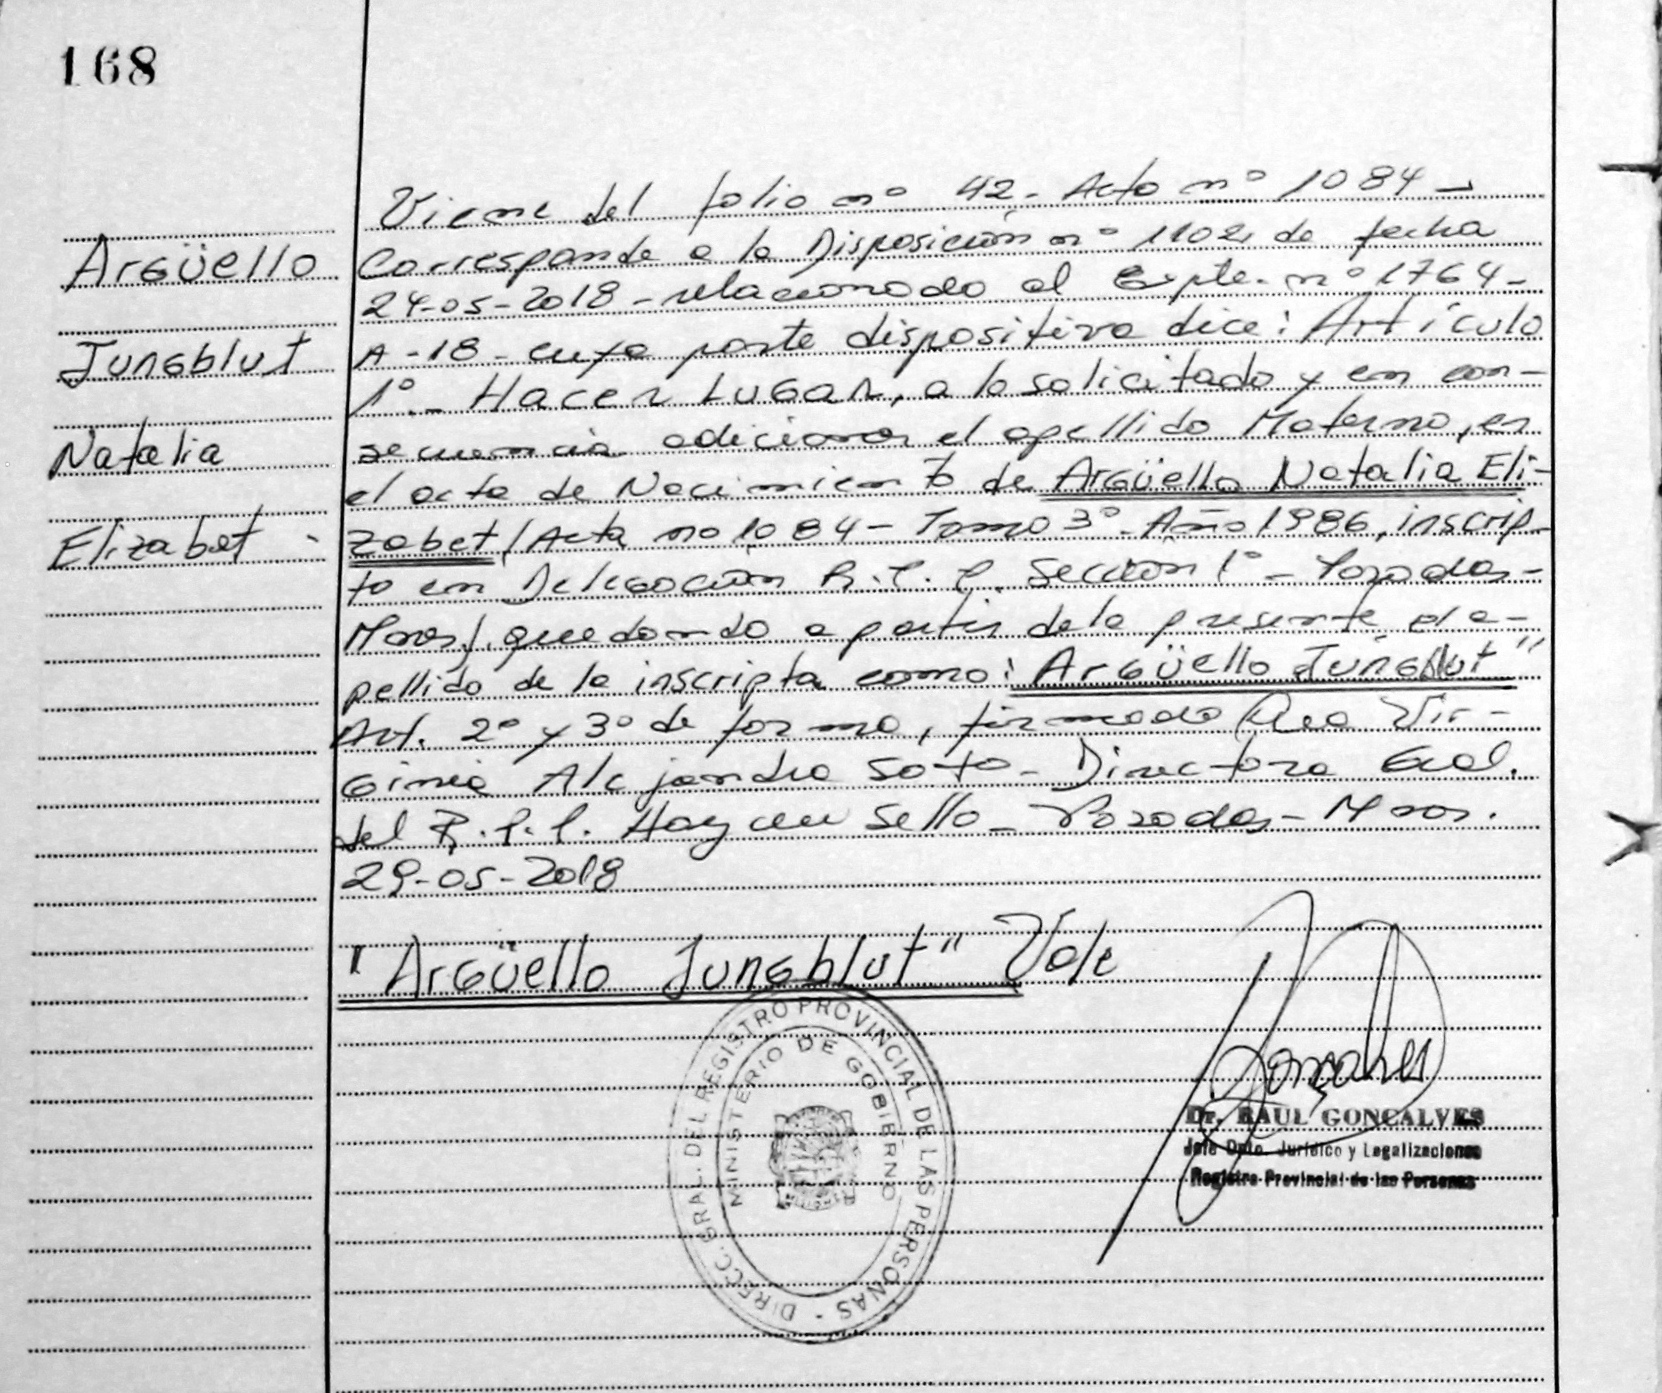 168
Argüello
Jungblut
Natalia
Elizabet -
Viene del folio nº 42 - Acta nº 1084 -
Corresponde a la Disposición nº 1102 de fecha
24-05-2018 - relacionado al Expte. nº 1764 -
A - 18 - cuya parte dispositiva dice: Artículo
1º - HACER LUGAR, a lo solicitado y en con-
secuencia adicionar el apellido Materno, en
el acta de Nacimiento de Argüello Natalia Eli-
zabet / Acta nº 1084 - Tomo 3º - Año 1986, inscrip-
to en Delegación R.P.P. Sección 1º - Posadas -
Mnes/, quedando a partir de la presente el a-
pellido de la inscripta como: Argüello Jungblut"
Art. 2º y 3º de forma, firmado Dra Vir-
ginia Alejandra Soto - Directora Gral.
del R.P.P. Hay un sello - Posadas - Mnes.
29-05-2018
"Argüello Jungblut" Vale
DIRECC. GRAL. DEL REGISTRO PROVINCIAL DE LAS PERSONAS -
MINISTERIO DE GOBIERNO
Gonçalves
Dr. RAUL GONCALVES
Jefe Dpto. Jurídico y Legalizaciones
Registro Provincial de las Personas